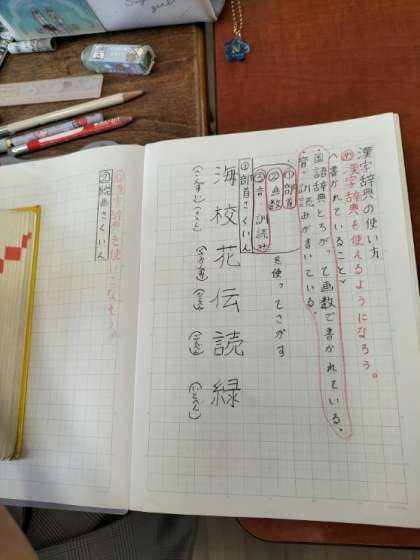 漢字辞典の使い方
め 漢字辞典を使えるようになろう。
〈書かれていること〉
・国語辞典とちがって画数で書かれている。
・音・訓読みが書いている。
①部首
②画数
③音訓読み
を使ってさがす
①部首さくいん
海 校 花 伝 読 緑
(さんずい) (きへん)
(いとへん)
②総画さくいん